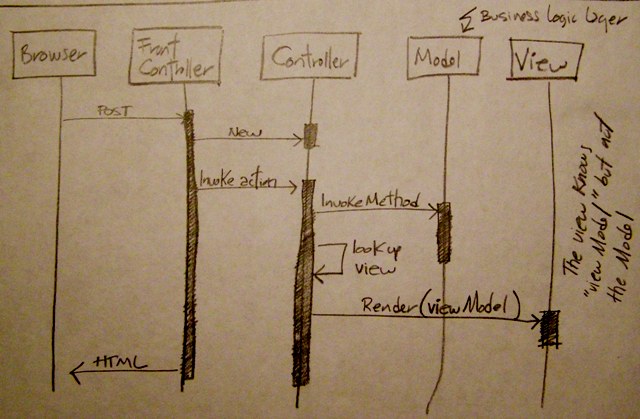 Business Logic Layer
Browser
Front
Controller
Controller
Model
View
POST
New
Invoke action
Invoke Method
lookup
view
Render(viewModel)
HTML
The view knows
"view Model" but not
the Model